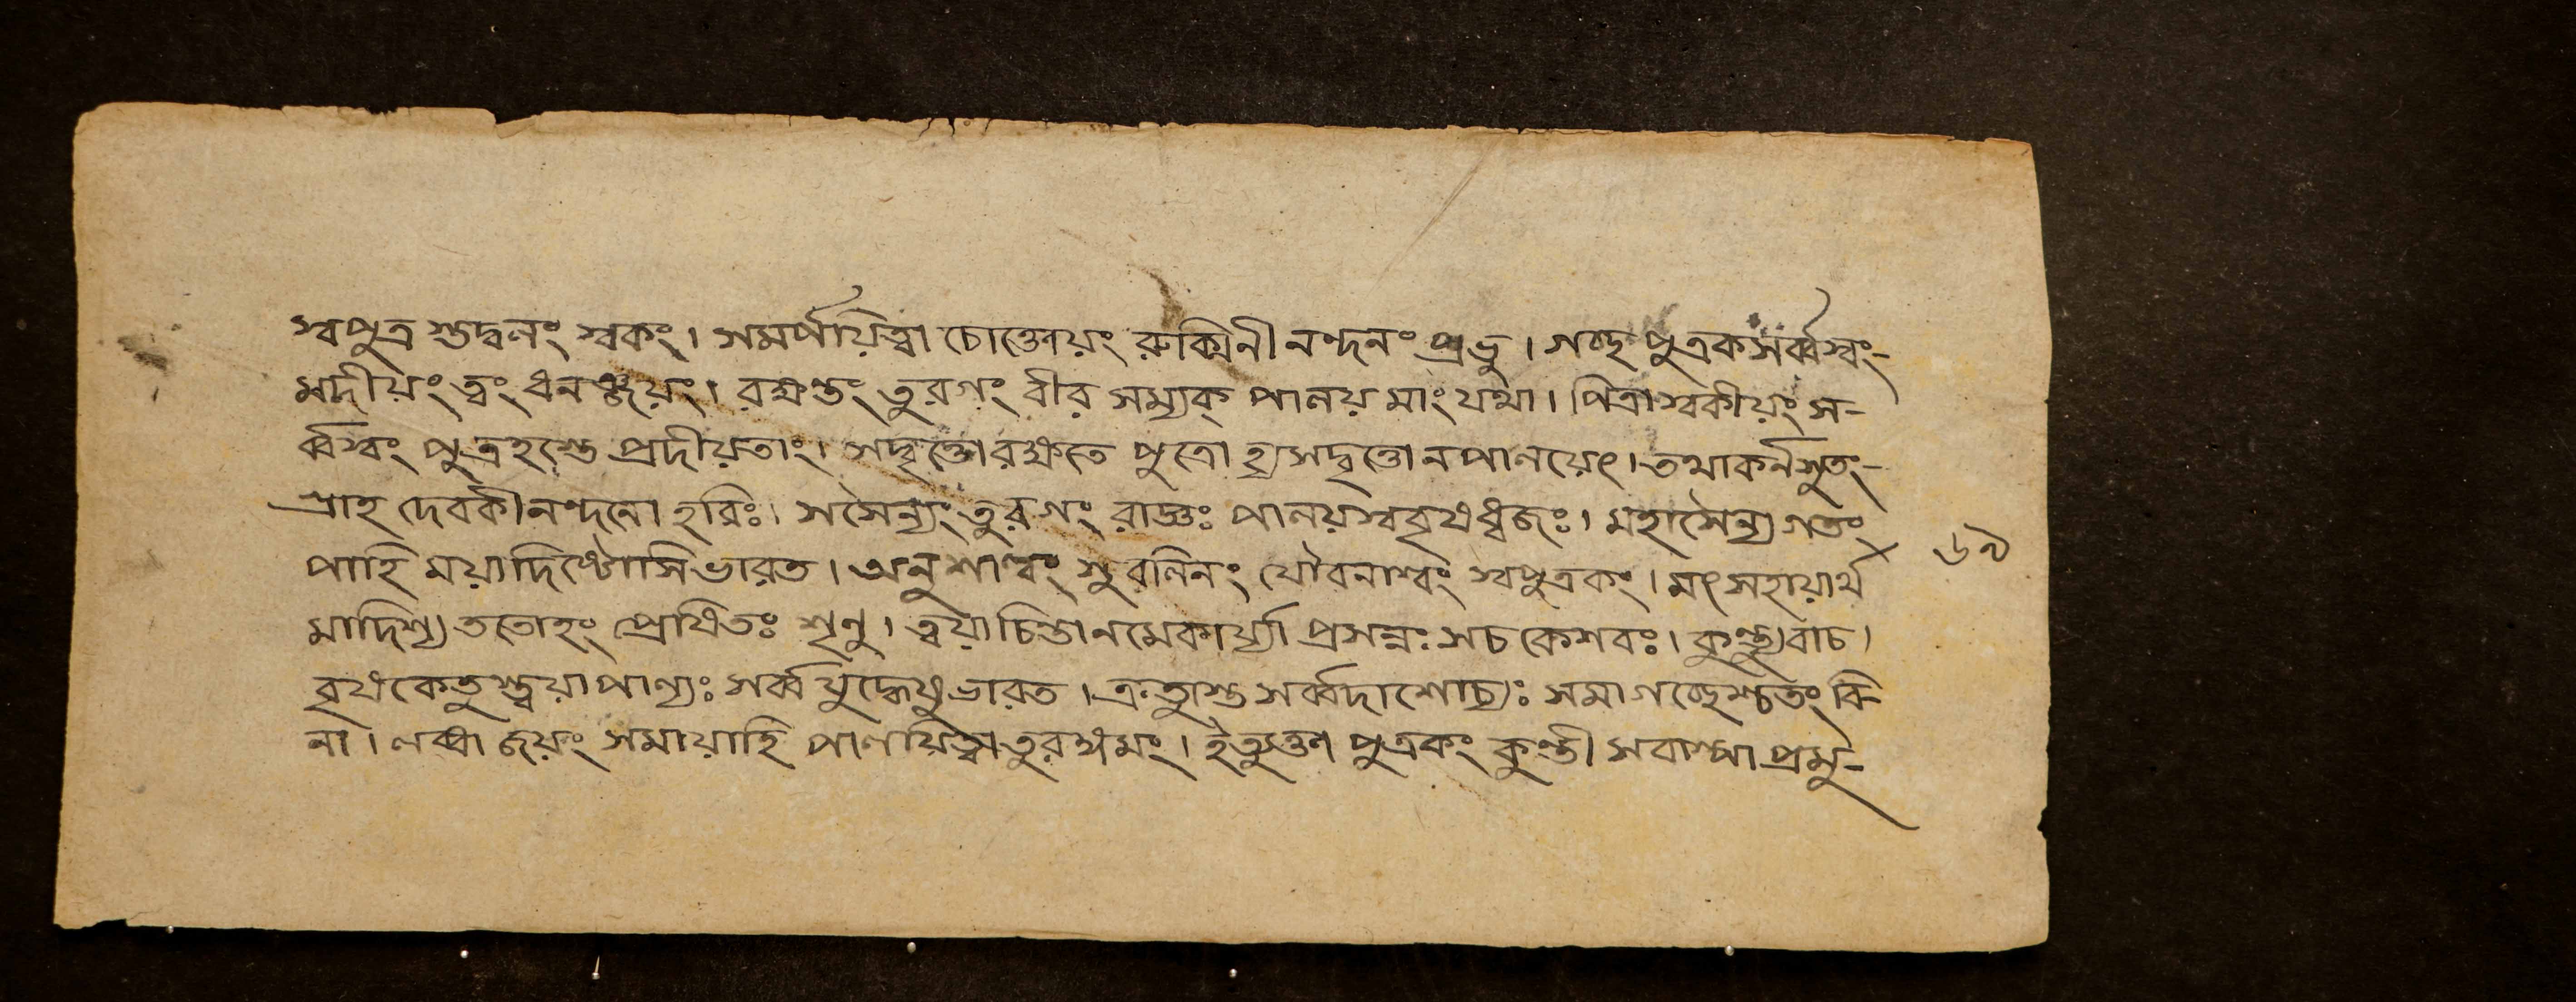 স্বপুত্র শুদ্বনং স্বকং। সমর্পয়িত্বা চোক্তোয়ং রুক্মিনী নন্দনং প্রভু। গচ্ছ পুত্রক সর্ব্বস্বং-
মদীয়ং ত্বং ধনঞ্জয়ং। রক্ষন্তং তুরগং বীর সম্যক্ পালয় মাং যথা। পিত্রা স্বকীয়ং স-
র্ব্বস্বং পুত্রহস্তে প্রদীয়তাং। সদ্বৃত্তো রক্ষতে পুত্রো হ্যসদ্বৃত্তো ন পালয়েৎ। তথা কর্নসুতং-
প্রাহ দেবকীনন্দনো হরিঃ। সসৈন্যং তুরগং রাজ্ঞঃ পালয়স্ব বৃষধ্বজঃ। মহাসৈন্য গতং
পাহি ময়াদিষ্টোসি ভারত। অনুশাল্বং সুবলিনং যৌবনাশ্বং স্বপুত্রকং। মৎসহায়ার্থ
মাদিশ্য ততোহং প্রেষিতঃ শৃণু। ত্বয়া চিন্তা ন মে কার্য্যা প্রসন্নঃ স চ কেশবঃ। কুন্ত্যুবাচ।
বৃষকেতুস্ত্বয়া পাল্যঃ সর্ব্ব যুদ্ধেষু ভারত। সর্ব্বদা শোচ্যঃ সমাগচ্ছেশ্চ তং বি
না। লব্ধা জয়ং সমায়াহি পালয়িত্বা তুরঙ্গমং। ইত্যুক্তা পুত্রকং কুন্তী সবাষ্পা প্রমু-
৬৯